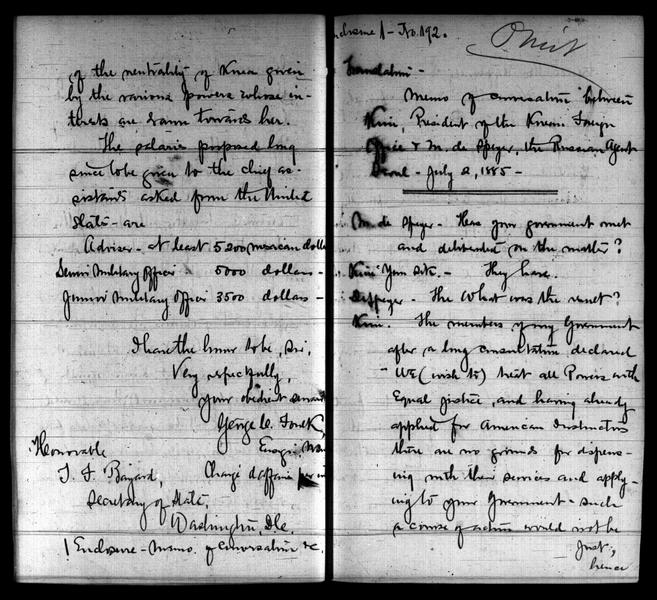 of the neutrality of Korea given
by the various powers whose in-
terests are drawn towards her.
The salaries proposed long
since to be given to the chief as-
sistants asked from the United
States - are
Adviser - at least 5200 mexican dolla
Senior Military Officer 5000 dollars -
Junior Military Officer 3500 dollars -
I have the honor to be, Sir,
Very respectfully,
your obedient servant
George C. Foulk,
Ensign
Honorable
T. F. Bayard, Chargé d'affaires
Secretary of State,
Washington,
1 Enclosure - Memo. of conversation &c.
Enclosure 1 - No. 192.
Omit
Translation -
Memo of conversation between
Kim, President of the Korean Foreign
Office & M. de Speyer, the Russian Agent
Seoul - July 2, 1885 -
M. de Speyer - Has your government met
and deliberated on the matter?
Kim Yun Sik. - They have.
De Speyer - The What was the result?
Kim. The members of my Government
after a long consultation declared
We (wish to) treat all Powers with
Equal justice, and having already
applied for American Instructors
there are no grounds for dispens-
ing with their services and apply-
ing to your Government - such
a course of action would not be
just,
hence